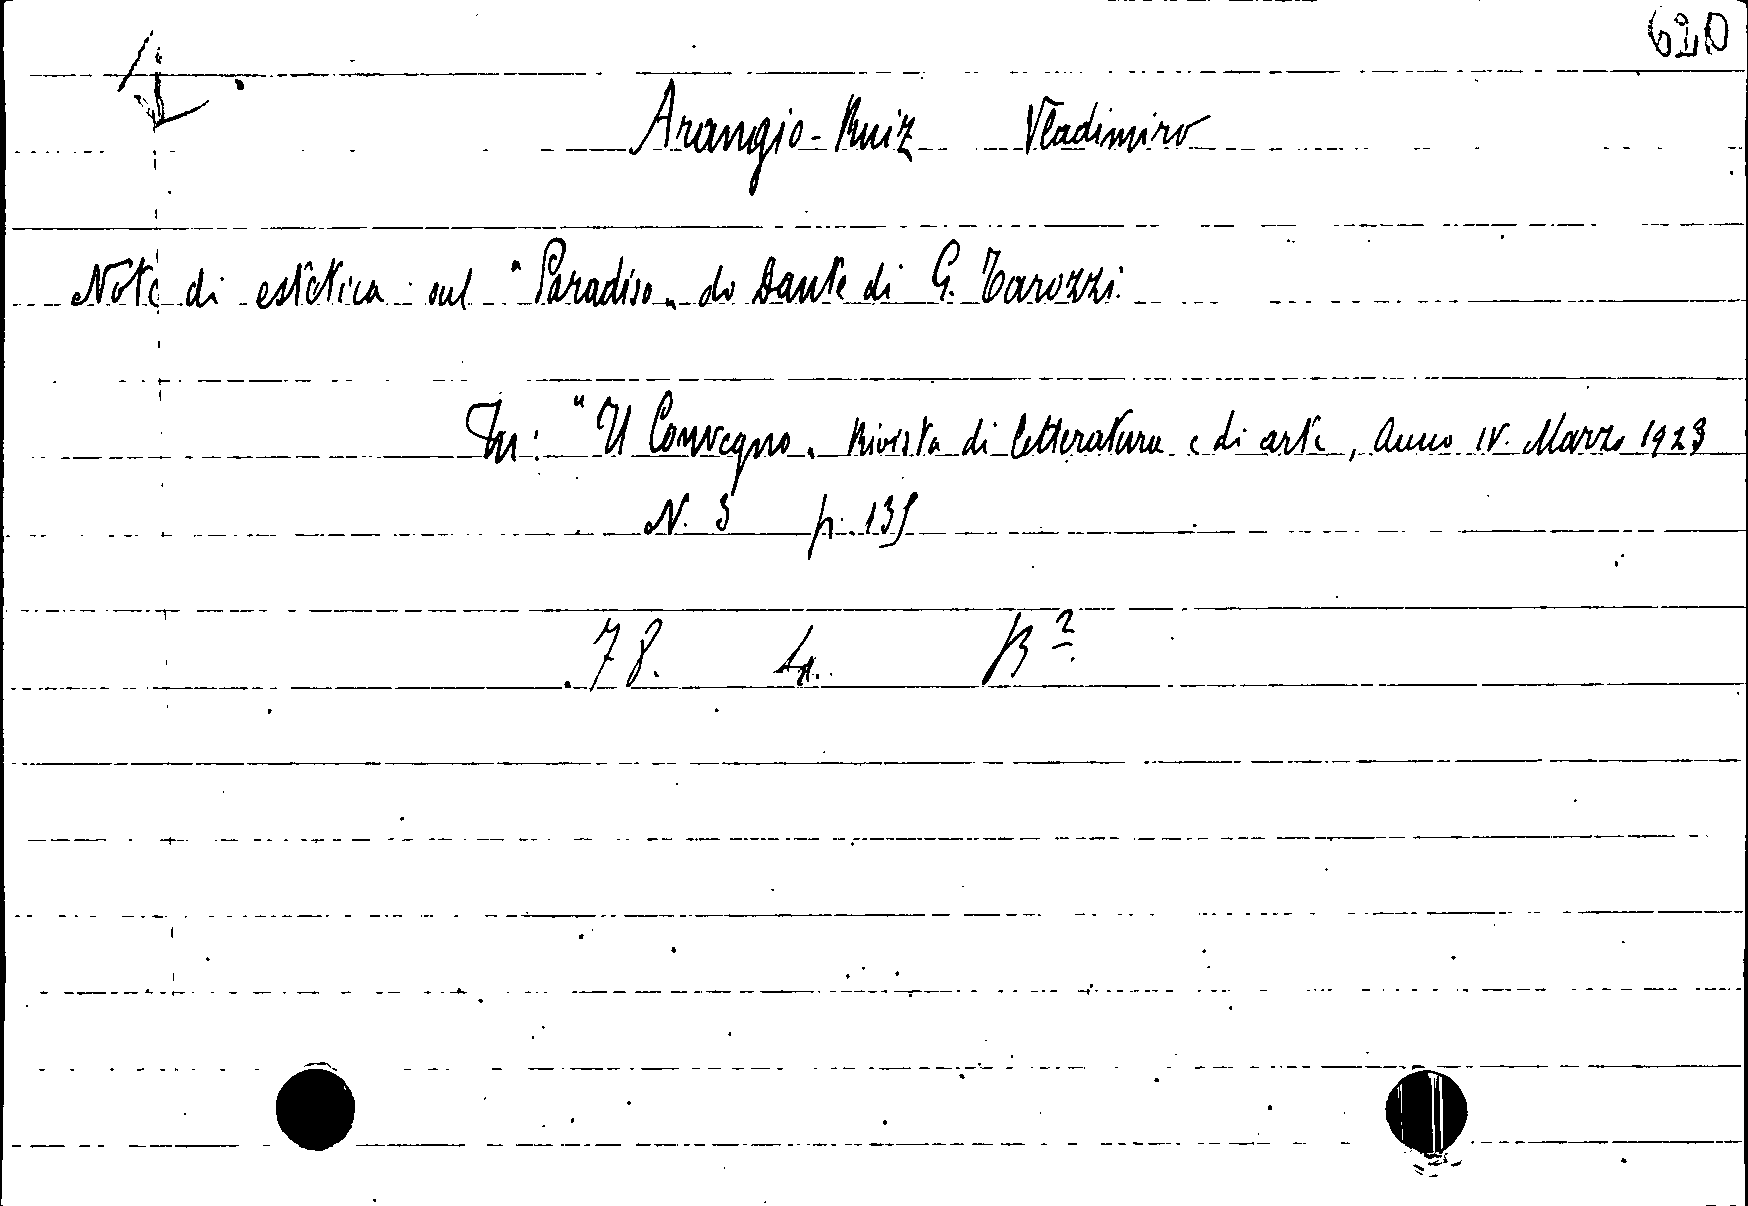 620
Arangio-Ruiz Vladimiro
Note di estetica sul "Paradiso" do Dante di G. Tarozzi.
In: "Il Convegno" Rivista di letteratura e di arte, Anno IV. Marzo 1923
N. 3 p. 135
78. B 2.